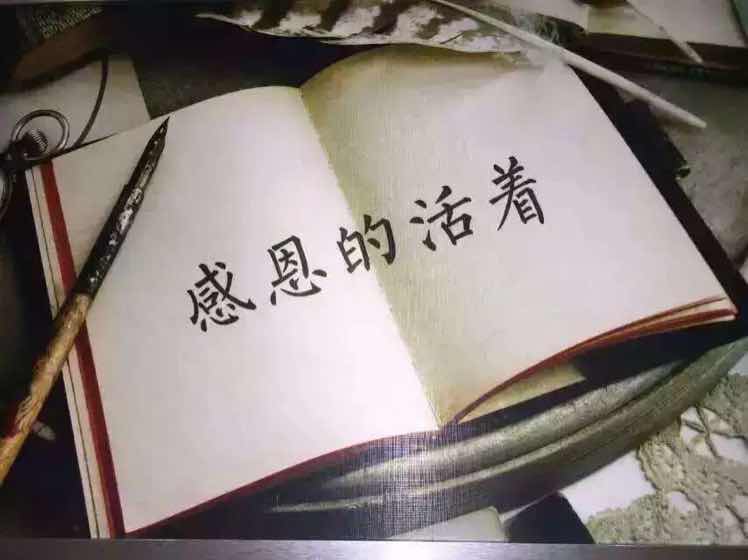 感恩的活着